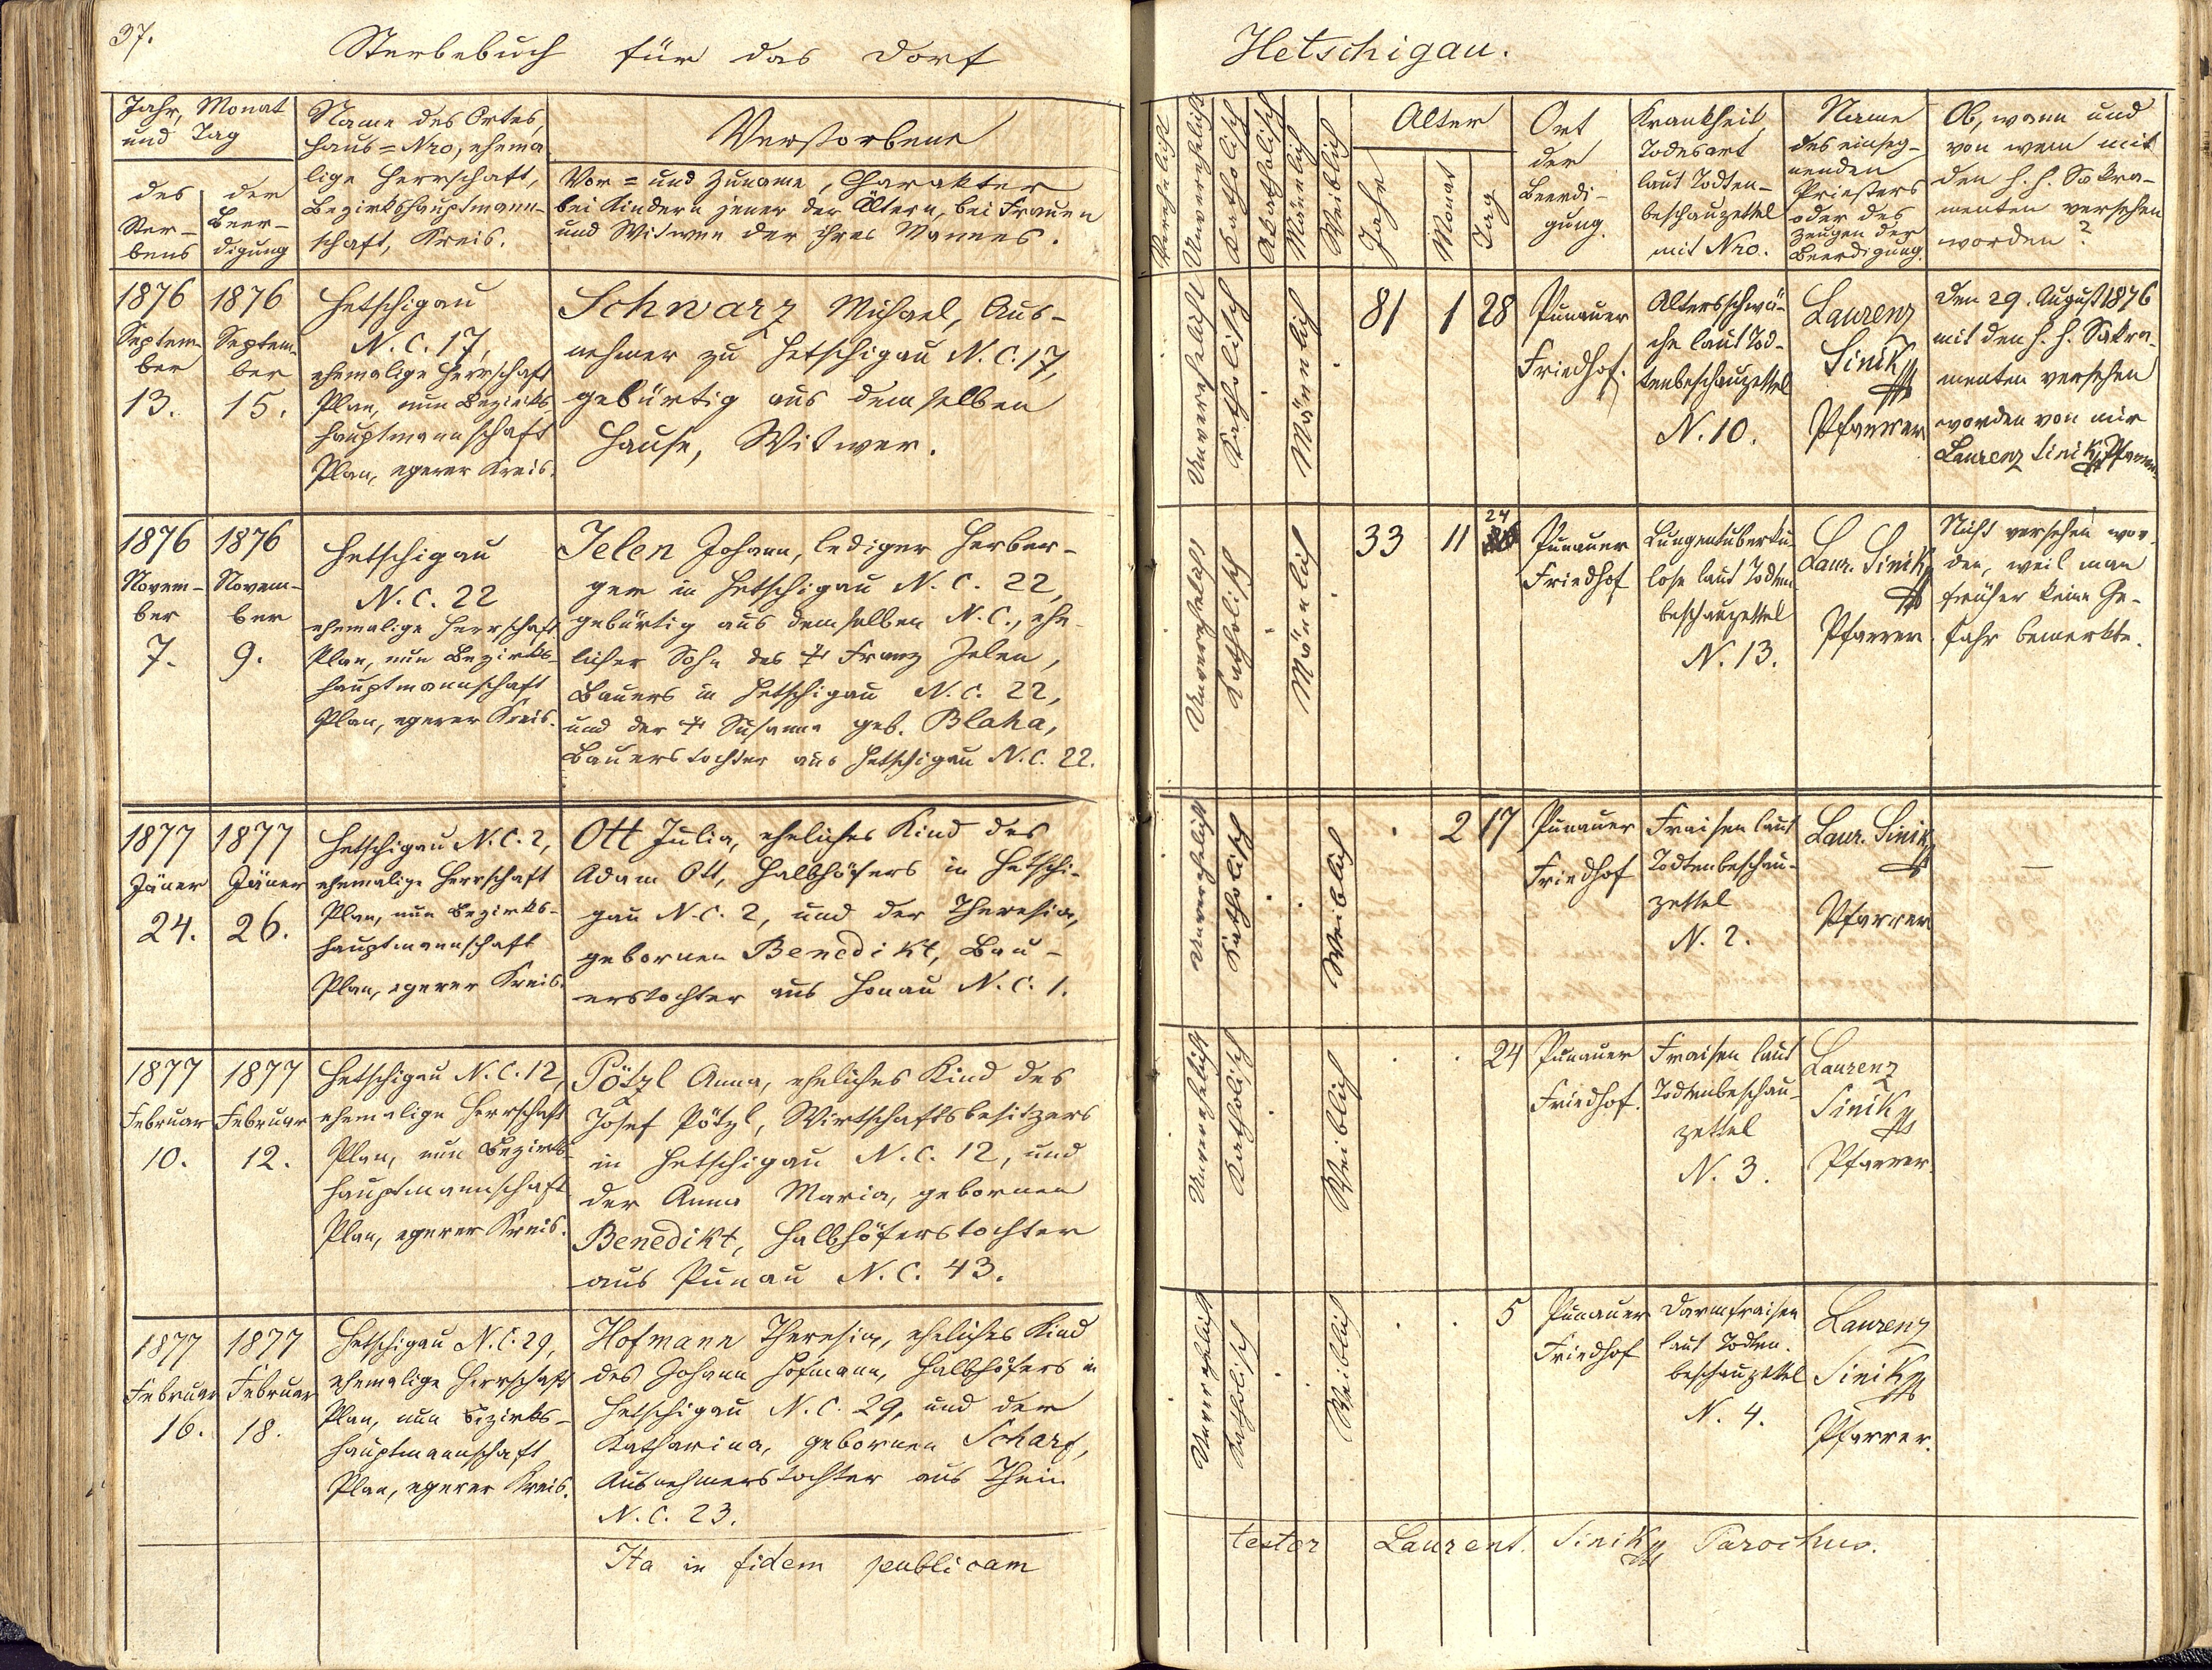 37.
Sterbebuch für das Dorf
Hetschigau.
Jahr, Monat
und Tag
des
Ster-
bens
der
Beer-
digung
Name des Ortes,
Haus=Nro, ehema
lige Herrschaft,
Bezirkshauptmann-
schaft, Kreis.
Verstorbene
Vor= und Zuname, Charakter
bei Kindern jener der Ältern, bei Frauen
und Witwen der ihres Mannes.
Verehelicht
Unverehelicht
Katholisch
Akatholisch
Männlich
Weiblich
Alter
Jahr
Monat
Tag
Ort
der
Beerdi-
gung.
Krankheit,
Todesart
laut Todten-
beschauzettel
mit Nro.
Name
des einseg-
nenden
Priesters
oder des
Zeugen der
Beerdigung.
Ob, wann und
von wem mit
den h. h. Sakra-
menten versehen
worden?
1876
Septem-
ber
13.
1876
Septem-
ber
15.
Hetschigau
N. C. 17,
ehemalige Herrschaft
Plan, nun Bezirks-
hauptmannschaft
Plan, egerer Kreis.
Schwarz Michael, Aus-
nehmer zu Hetschigau N. C. 17,
gebürtig aus demselben
Hause, Witwer.
Unverehelicht
Katholisch
Männlich
81
1
28
Punauer
Friedhof.
Altersschwä-
che laut Tod-
tenbeschauzettel
N. 10.
Laurenz
Siniky
Pfarrer
Den 29. August 1876
mit den h. h. Sakra-
menten versehen
worden von mir
Laurenz Siniky Pfarrer.
1876
Novem-
ber
7.
1876
Novem-
ber
9.
Hetschigau
N. C. 22
ehemalige Herrschaft
Plan, nun Bezirks-
hauptmannschaft
Plan, egerer Kreis.
Jelen Johann, lediger Herber-
ger in Hetschigau N. C. 22,
gebürtig aus demselben N. C., ehe-
licher Sohn des † Franz Jelen,
Bauers in Hetschigau N. C. 22,
und der † Susanna geb. Blaha,
Bauerstochter aus Hetschigau N. C. 22.
Unverehelicht
Katholisch
Männlich
33
11
24
Punauer
Friedhof
Lungentuberku-
lose laut Todten-
beschauzettel
N. 13.
Laur. Siniky
Pfarrer.
Nicht versehen wor-
den, weil man
früher keine Ge-
fahr bemerkte.
1877
Jäner
24.
1877
Jäner
26.
Hetschigau N. C. 2,
ehemalige Herrschaft
Plan, nun Bezirks-
hauptmannschaft
Plan, egerer Kreis.
Ott Julia, eheliches Kind des
Adam Ott, Halbhöfers in Hetschi-
gau N. C. 2, und der Theresia,
gebornen Benedikt, Bau-
erstochter aus Honau N. C. 1.
Unverehelicht
Katholisch
Weiblich
2
17
Punauer
Friedhof
Fraisen laut
Todtenbeschau-
zettel
N. 2.
Laur. Siniky
Pfarrer
—
1877
Februar
10.
1877
Februar
12.
Hetschigau N. C. 12,
ehemalige Herrschaft
Plan, nun Bezirks-
hauptmannschaft
Plan, egerer Kreis.
Pötzl Anna, eheliches Kind des
Josef Pötzl, Wirtschaftsbesitzers
in Hetschigau N. C. 12, und
der Anna Maria, gebornen
Benedikt, Halbhöferstochter
aus Punau N. C. 43.
Unverehelicht
Katholisch
Weiblich
24
Punauer
Friedhof.
Fraisen laut
Todtenbeschau-
zettel
N. 3.
Laurenz
Siniky
Pfarrer.
1877
Februar
16.
1877
Februar
18.
Hetschigau N. C. 29,
ehemalige Herrschaft
Plan, nun Bezirks-
hauptmannschaft
Plan, egerer Kreis.
Hofmann Theresia, eheliches Kind
des Johann Hofmann, Halbhöfers in
Hetschigau N. C. 29, und der
Katharina, gebornen Scharf,
Ausnehmerstochter aus Thein
N. C. 23.
Unverehelicht
Katholisch
Weiblich
5
Punauer
Friedhof
Darmfraisen
laut Todten-
beschauzettel
N. 4.
Laurenz
Siniky
Pfarrer.
Ita in fidem publicam
testor Laurent. Siniky Parochus.